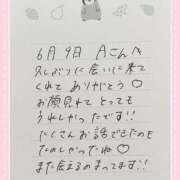 6月9日 Aさんへ
久しぶりに会いに来て
くれてありがとう♡
お顔見れてとっても
うれしかったです!!
たくさんお話できたのも
たのしかったね♡
また会えるのまってます!!